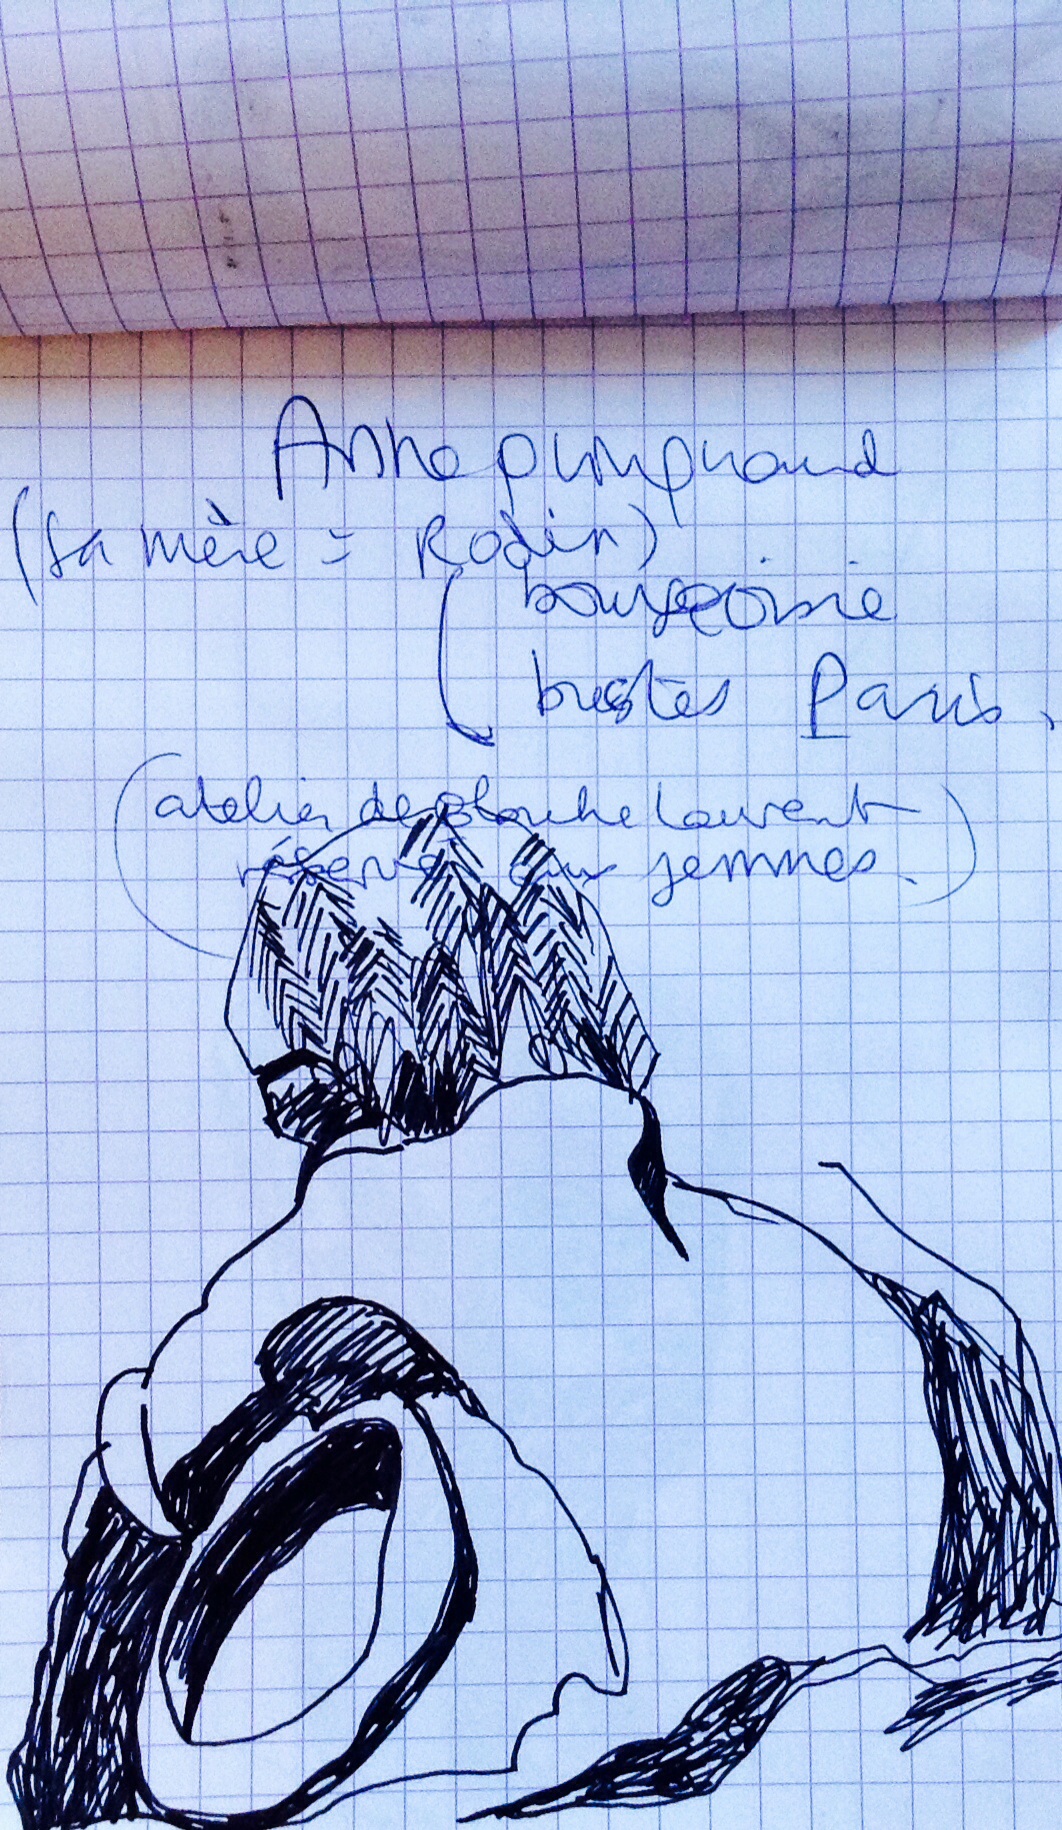 Anne
(sa mère = Rodin)
bourgeoisie
bustes Paris.
(atelier de Blanche Laurent
réservé aux femmes.)